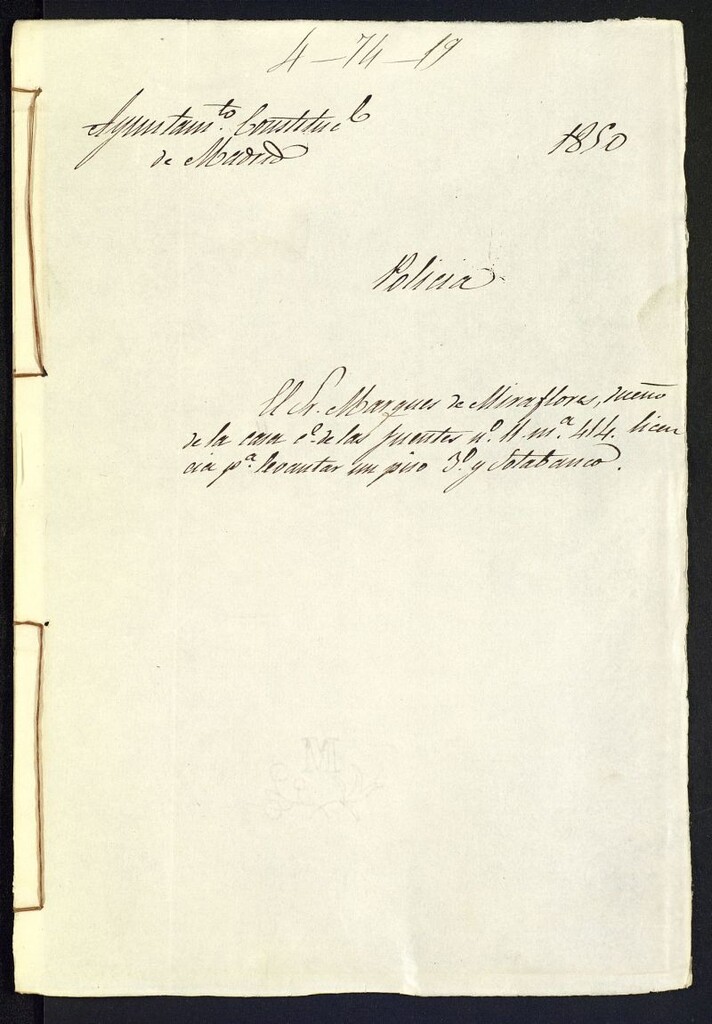 4-74-19
Ayuntam.to Constituc.l
de Madrid
1850
Policia
El Sr. Marques de Miraflores, dueño
de la casa c.e de las fuentes n.o 11 m.a 414. licen
cia p.a levantar un piso 3.o y Sotabanco.
M